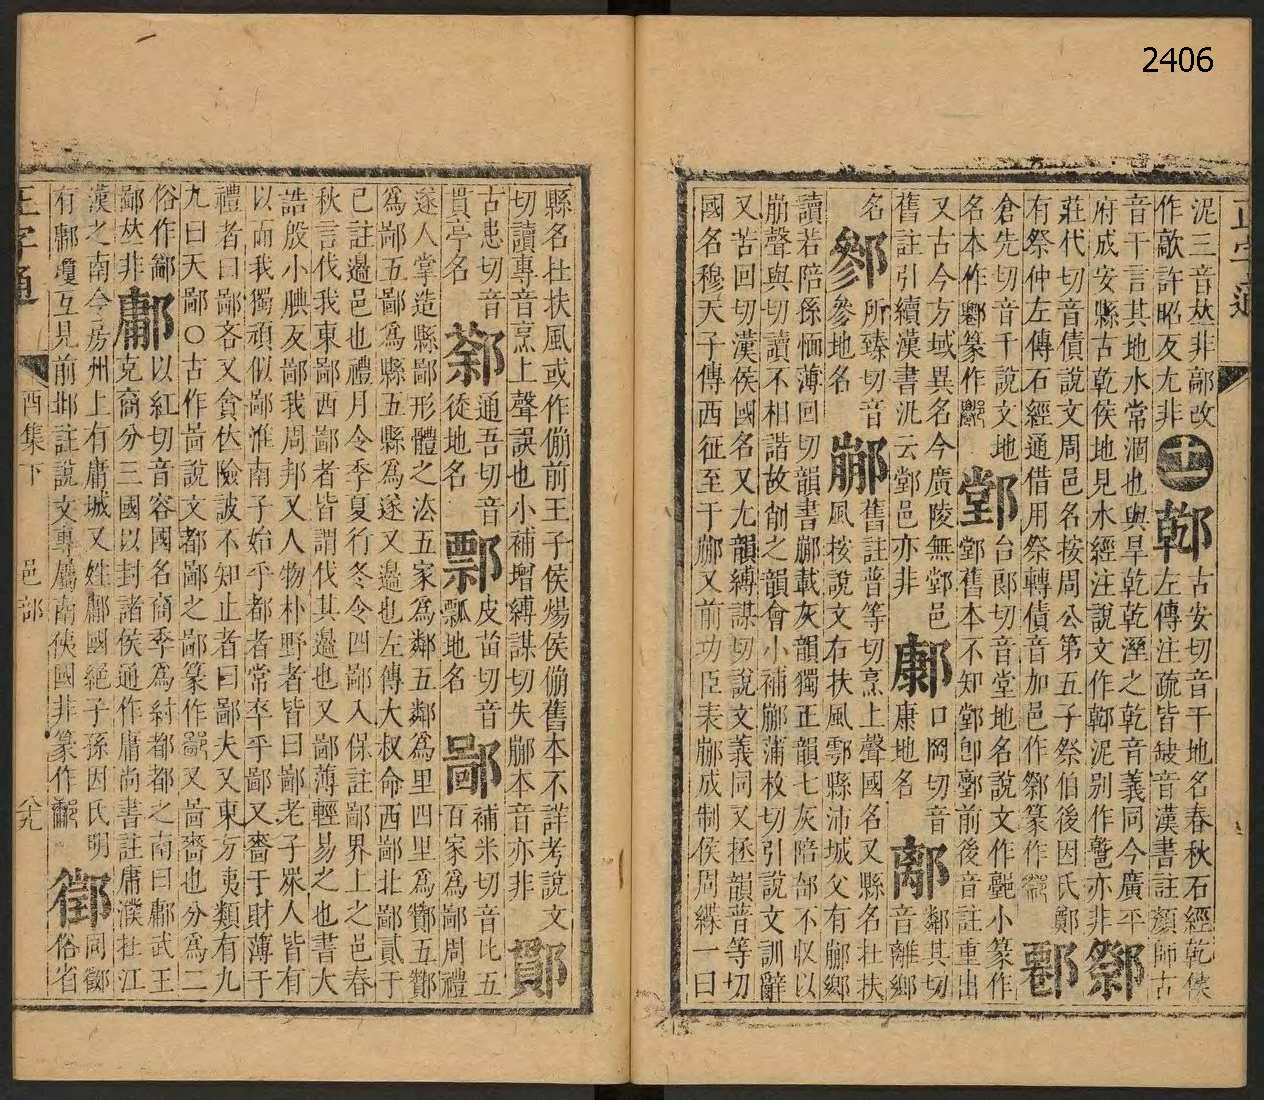 2406
正字通
泥三音𠀤非鄗改
作歊許昭友尢非 十一 𨝌 古安切音干地名春秋石經乾侯
左傳注疏皆缺音漢書註顏師古
音干言其地水常涸也與旱乾乾溼之乾音義同今廣平
府成安縣古乾侯地見水經注說文作𨝌泥別作䶎亦非 鄒
莊代切音債說文周邑名按周公第五子祭伯後因氏鄭
有祭仲左傳石經通借用祭轉債音加邑作鄒篆作 鄠
倉先切音千說文地
名本作䙴篆作 鄧 台郎切音堂地名說文作䣊小篆作
鄧舊本不知鄧卽䣊前後音註重出
又古今方域異名今廣陵無鄧邑
舊註引續漢書汎云鄧邑亦非 鄘 口岡切音
康地名 鄰 鄰其切
音離鄉
名 鄝 所臻切音
參地名 䣙 舊註普等切烹上聲國名又縣名在扶
風按說文右扶風鄠縣沛城父有䣙鄉
讀若陪孫愐薄回切韻書䣙載灰韻獨正韻七灰陪部不收以
崩聲與切讀不相諧故削之韻會小補䣙蒲枚切引說文訓辭
又苦回切漢侯國名又尢韻縛謀切說文義同又拯韻普等切
國名穆天子傳西征至于䣙又前功臣表䣙成制侯周緤一曰
縣名在扶風或作傰前王子侯煬侯傰舊本不詳考說文
切讀專音烹上聲誤也小補增縛謀切失䣙本音亦非 鄮
古患切音
貫亭名 䣕 通吾切音
徒地名 𨞓 皮苗切音
瓢地名 鄙 補米切音比五
百家為鄙周禮
遂人掌造縣鄙形體之法五家為鄰五鄰為里四里為酇五酇
為鄙五鄙為縣五縣為遂又邊也左傳大叔命西鄙北鄙貳于
已註邊邑也禮月令季夏行冬令四鄙入保註鄙界上之邑春
秋言伐我東鄙西鄙者皆謂伐其邊也又鄙薄輕易之也書大
誥殷小腆反鄙我周邦又人物朴野者皆曰鄙老子眾人皆有
以而我獨頑似鄙淮南子始乎都者常卒乎鄙又嗇于財薄于
禮者曰鄙吝又貪伏險詖不知止者曰鄙夫又東方夷類有九
九曰天鄙〇古作啚說文都鄙之鄙篆作 又啚嗇也分為二
俗作鄙
鄙𠀤非 鄘 以紅切音容國名商季為紂都都之南曰鄘武王
克商分三國以封諸侯通作庸尚書註庸濮在江
漢之南今房州上有庸城又姓鄘國絕子孫因氏明 同鄘
有鄘瓊互見前邶註說文專屬南侯國非篆作 鄇 俗省
正字通
酉集下 邑部 八九